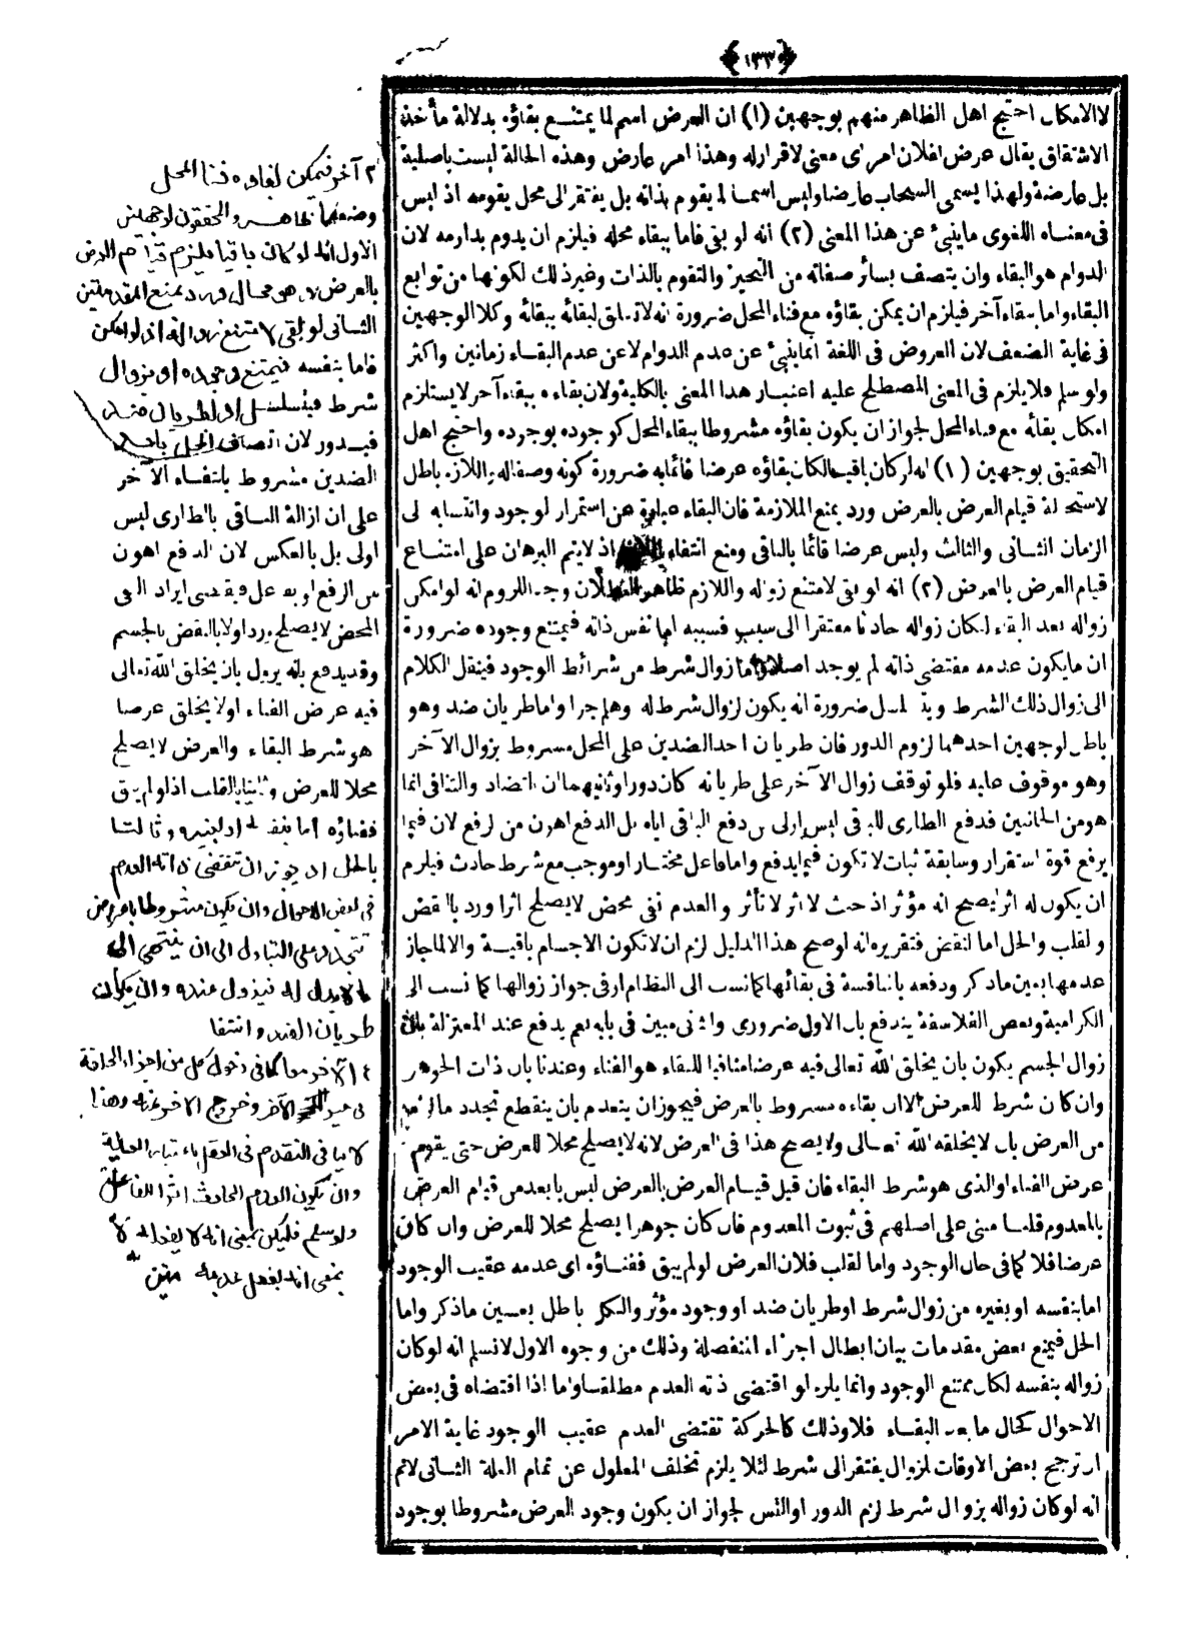 ﴿١٣٣﴾
لا الامكان احتج اهل الظاهر منهم بوجهين (١) ان العرض اسم لما يمتنع بقاؤه بدلالة مأخذ
الاشتقاق يقال عرض لفلان امر اى معنى لاقرار له وهذا امر عارض وهذه الحالة ليست باصلية
بل عارضة ولهذا يسمى السحاب عارضا وليس اسما لما يقوم بذاته بل يفتقر الى محل يقومه اذ ليس
فى معناه اللغوى ماينبئ عن هذا المعنى (٢) انه لو بقى فاما ببقاء محله فيلزم ان يدوم بدوامه لان
الدوام هو البقاء وان يتصف بسائر صفاته من التحيز والتقوم بالذات وغير ذلك لكونها من توابع
البقاء واما ببقاء آخر فيلزم ان يمكن بقاؤه مع فناء المحل ضرورة انه لاتعلق لبقائه ببقائه وكلا الوجهين
فى غاية الضعف لان العروض فى اللغة انما ينبئ عن عدم الدوام لا عن عدم البقاء زمانين واكثر
ولو سلم فلا يلزم فى المعنى المصطلح عليه اعتبار هذا المعنى بالكلية ولان بقاءه ببقاء آخر لايستلزم
امكان بقائه مع فناء المحل لجواز ان يكون بقاؤه مشروطا ببقاء المحل كوجوده بوجوده واحتج اهل
التحقيق بوجهين (١) انه لو كان باقيا لكان بقاؤه عرضا قائما به ضرورة كونه وصفا له واللازم باطل
لاستحالة قيام العرض بالعرض ورد بمنع الملازمة فان البقاء عبارة عن استمرار الوجود وانتسابه الى
الزمان الثانى والثالث وليس عرضا قائما بالباقى ومنع انتفاء اذ لايتم البرهان على امتناع
قيام العرض بالعرض (٢) انه لو بقى لامتنع زواله واللازم ظاهر البطلان وجه اللزوم انه لو امكن
زواله بعد البقاء لكان زواله حادثا مفتقرا الى سبب فسببه اما نفس ذاته فيمتنع وجوده ضرورة
ان مايكون عدمه مقتضى ذاته لم يوجد اصلا واما زوال شرط من شرائط الوجود فينقل الكلام
الى زوال ذلك الشرط ويتسلسل ضرورة انه يكون لزوال شرط له وهلم جرا واما طريان ضد وهو
باطل لوجهين احدهما لزوم الدور فان طريان احد الضدين على المحل مشروط بزوال الآخر
وهو موقوف عليه فلو توقف زوال الآخر على طريانه كان دورا وثانيهما ان التضاد والتنافى انما
هو من الجانبين فدفع الطارى للباقى ليس اولى من دفع الباقى اياه بل الدفع اهون من الرفع لان فيما
يرفع قوة استقرار وسابقة ثبات لاتكون فيما يدفع واما فاعل مختار او موجب مع شرط حادث فيلزم
ان يكون له اثر ليصح انه مؤثر اذ حيث لا اثر لاتأثر والعدم نفى محض لايصلح اثرا ورد بالنقض
والقلب والحل اما النقض فتقريره انه لو صح هذا الدليل لزم ان لاتكون الاجسام باقية والا لما جاز
عدمها بعين ماذكر ودفعه بالمناقشة فى بقائها كما نسب الى النظام او فى جواز زوالها كما نسب الى
الكرامية وبعض الفلاسفة يندفع بان الاول ضرورى والثانى مبين فى بابه نعم يدفع عند المعتزلة بان
زوال الجسم يكون بان يخلق الله تعالى فيه عرضا منافيا للبقاء هو الفناء وعندنا بان ذات الجوهر
وان كان شرط للعرض الا ان بقاءه مشروط بالعرض فيجوز ان ينعدم بان ينقطع تجدد مالابد
من العرض بان لايخلقه الله تعالى ولايصح هذا فى العرض لانه لايصلح محلا للعرض حتى يقوم
عرض الفناء او الذى هو شرط البقاء فان قيل قيام العرض بالعرض ليس بابعد من قيام العرض
بالمعدوم قلنا مبنى على اصلهم فى ثبوت المعدوم فان كان جوهرا يصلح محلا للعرض وان كان
عرضا فلا كما فى حال الوجود واما القلب فلان العرض لو لم يبق ففناؤه اى عدمه عقيب الوجود
اما بنفسه او بغيره من زوال شرط او طريان ضد او وجود مؤثر والكل باطل بعين ماذكر واما
الحل فيمنع بعض مقدمات بيان ابطال اجزاء المنفصلة وذلك من وجوه الاول لانسلم انه لو كان
زواله بنفسه لكان ممتنع الوجود وانما يلزم لو اقتضى ذاته العدم مطلقا واما اذا اقتضاه فى بعض
الاحوال كحال مابعد البقاء فلا وذلك كالحركة تقتضى العدم عقيب الوجود غاية الامر
ان ترجيح بعض الاوقات للزوال يفتقر الى شرط لئلا يلزم تخلف المعلول عن تمام العلة الثانى لانم
انه لو كان زواله بزوال شرط لزم الدور او التس لجواز ان يكون وجود العرض مشروطا بوجود
٣ آخر فيمكن لقاؤه مع فناء المحل
وضعفهما ظاهر والمحققون لوجهين
الاول انه لو كان باقيا فيلزم قيام العرض
بالعرض وهو محال ورد بمنع المقدمتين
الثانى لو بقى لامتنع زواله اذ لو امكن
فاما بنفسه فيمتنع وجوده او بزوال
شرط فيتسلسل او لطريان ضد
فيدور لان اتصاف المحل باحد
الضدين مشروط بانتفاء الآخر
على ان ازالة الباقى بالطارى ليس
اولى بل بالعكس لان الدفع اهون
من الرفع او بفاعل فيقتضى ايراد النفى
المحض لايصلح ورد اولا بالنقض بالجسم
وقد يدفع بانه يزول بان يخلق الله تعالى
فيه عرض الفناء او لا يخلق عرضا
هو شرط البقاء والعرض لايصلح
محلا للعرض وثانيا بالقلب اذ لو لم يبق
ففناؤه اما بنفسه او لغيره وثالثا
بالحل اذ يجوز ان تقتضى ذاته العدم
فى بعض الاحوال وان يكون مشروطا بعرض
تتجدد على التبادل الى ان ينتهى الى
مالا بدل له فيزول عنده وان يكون
طريان الضد وانتفا
٤ الآخر معا كما فى دخول كل من اجزاء الحلقة
فى حيز الآخر وخروج الاخر عنه وهذا
لا ينافى التقدم فى العقل باعتبار العلية
وان يكون العدم الحادث اثرا للفاعل
ولو سلم فليكن بمعنى انه لا يفعل لا
بمعنى انه يفعل عدمه متن